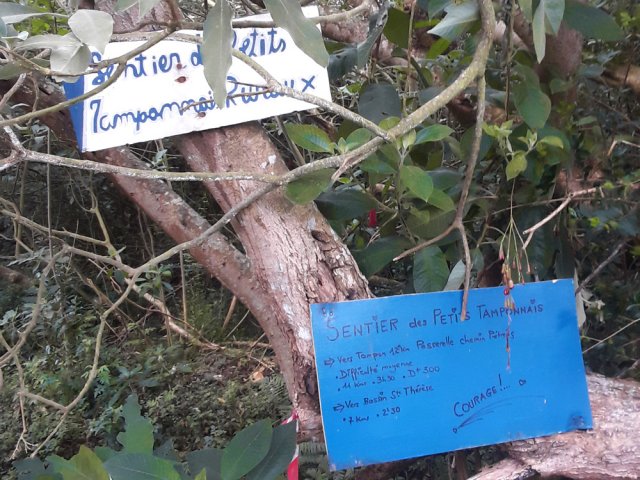 Sentier des Petits
Tamponnais
SENTIER des PETITS TAMPONNAIS
⇒ Vers Tampon 12km Passerelle chemin
. Difficulté moyenne
. 11 Kms . 3h30 . D+ 300
⇒ Vers Bassin Ste Thérèse
. 7 Kms . 2h30
COURAGE !...